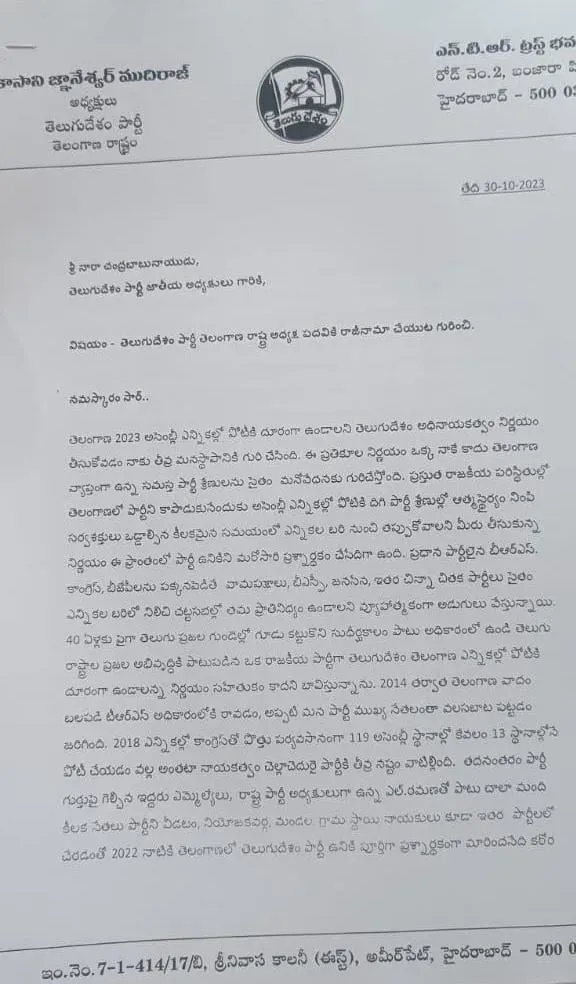 కాసాని జ్ఞానేశ్వర్ ముదిరాజ్
అధ్యక్షులు
తెలుగుదేశం పార్టీ
తెలంగాణ రాష్ట్రం
తెలుగుదేశం
ఎన్.టి.ఆర్. ట్రస్ట్ భవ
రోడ్ నెం.2, బంజారా హి
హైదరాబాద్ - 500 03
తేది 30-10-2023
శ్రీ నారా చంద్రబాబునాయుడు,
తెలుగుదేశం పార్టీ జాతీయ అధ్యక్షులు గారికి,
విషయం - తెలుగుదేశం పార్టీ తెలంగాణ రాష్ట్ర అధ్యక్ష పదవికి రాజీనామా చేయుట గురించి.
నమస్కారం సార్..
తెలంగాణ 2023 అసెంబ్లీ ఎన్నికల్లో పోటీకి దూరంగా ఉండాలని తెలుగుదేశం అధినాయకత్వం నిర్ణయం
తీసుకోవడం నాకు తీవ్ర మనస్థాపానికి గురి చేసింది. ఈ ప్రతికూల నిర్ణయం ఒక్క నాకే కాదు తెలంగాణ
వ్యాప్తంగా ఉన్న సమస్త పార్టీ శ్రేణులను సైతం మనోవేదనకు గురిచేస్తోంది. ప్రస్తుత రాజకీయ పరిస్థితుల్లో
తెలంగాణలో పార్టీని కాపాడుకునేందుకు అసెంబ్లీ ఎన్నికల్లో పోటీకి దిగి పార్టీ శ్రేణుల్లో ఆత్మస్థైర్యం నింపి
సర్వశక్తులు ఒడ్డాల్సిన కీలకమైన సమయంలో ఎన్నికల బరి నుంచి తప్పుకోవాలని మీరు తీసుకున్న
నిర్ణయం ఈ ప్రాంతంలో పార్టీ ఉనికిని మరోసారి ప్రశ్నార్థకం చేసేదిగా ఉంది. ప్రధాన పార్టీలైన బీఆర్ఎస్.
కాంగ్రెస్, బీజేపీలను పక్కనపెడితే వామపక్షాలు, బీఎస్పీ, జనసేన, ఇతర చిన్నా చితక పార్టీలు సైతం
ఎన్నికల బరిలో నిలిచి చట్టసభల్లో తమ ప్రాతినిధ్యం ఉండాలని వ్యూహాత్మకంగా అడుగులు వేస్తున్నాయి.
40 ఏళ్లకు పైగా తెలుగు ప్రజల గుండెల్లో గూడు కట్టుకొని సుదీర్ఘకాలం పాటు అధికారంలో ఉండి తెలుగు
రాష్ట్రాల ప్రజల అభివృద్ధికి పాటుపడిన ఒక రాజకీయ పార్టీగా తెలుగుదేశం తెలంగాణ ఎన్నికల్లో పోటీకి
దూరంగా ఉండాలన్న నిర్ణయం సహేతుకం కాదని బావిస్తున్నాను. 2014 తర్వాత తెలంగాణ వాదం
బలపడి టీఆర్ఎస్ అధికారంలోకి రావడం, అప్పటి మన పార్టీ ముఖ్య నేతలంతా వలసబాట పట్టడం
జరిగింది. 2018 ఎన్నికల్లో కాంగ్రెస్‌తో పొత్తు పర్యవసానంగా 119 అసెంబ్లీ స్థానాల్లో కేవలం 13 స్థానాల్లోనే
పోటీ చేయడం వల్ల అంతటా నాయకత్వం చెల్లాచెదురై పార్టీకి తీవ్ర నష్టం వాటిల్లింది. తదనంతరం పార్టీ
గుర్తుపై గెల్చిన ఇద్దరు ఎమ్మెల్యేలు, రాష్ట్ర పార్టీ అధ్యక్షులుగా ఉన్న ఎల్.రమణతో పాటు చాలా మంది
కీలక నేతలు పార్టీని వీడటం, నియోజకవర్గ, మండల గ్రామ స్థాయి నాయకులు కూడా ఇతర పార్టీలలో
చేరడంతో 2022 నాటికి తెలంగాణలో తెలుగుదేశం పార్టీ ఉనికి పూర్తిగా ప్రశ్నార్థకంగా మారిందనేది కఠోర
ఇం.నెం.7-1-414/17/బి, శ్రీనివాస కాలనీ (ఈస్ట్), అమీర్‌పేట్, హైదరాబాద్ - 500 0